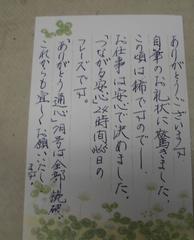 ありがとうございます
自筆のお礼状に驚きました。
この頃は稀ですので―
お仕事は安心で決めました。
「つながる安心」24時間365日の
フレーズでです
ありがとう通心 28号は全部 読破、
これからも宜しくお願いいたし
ます。